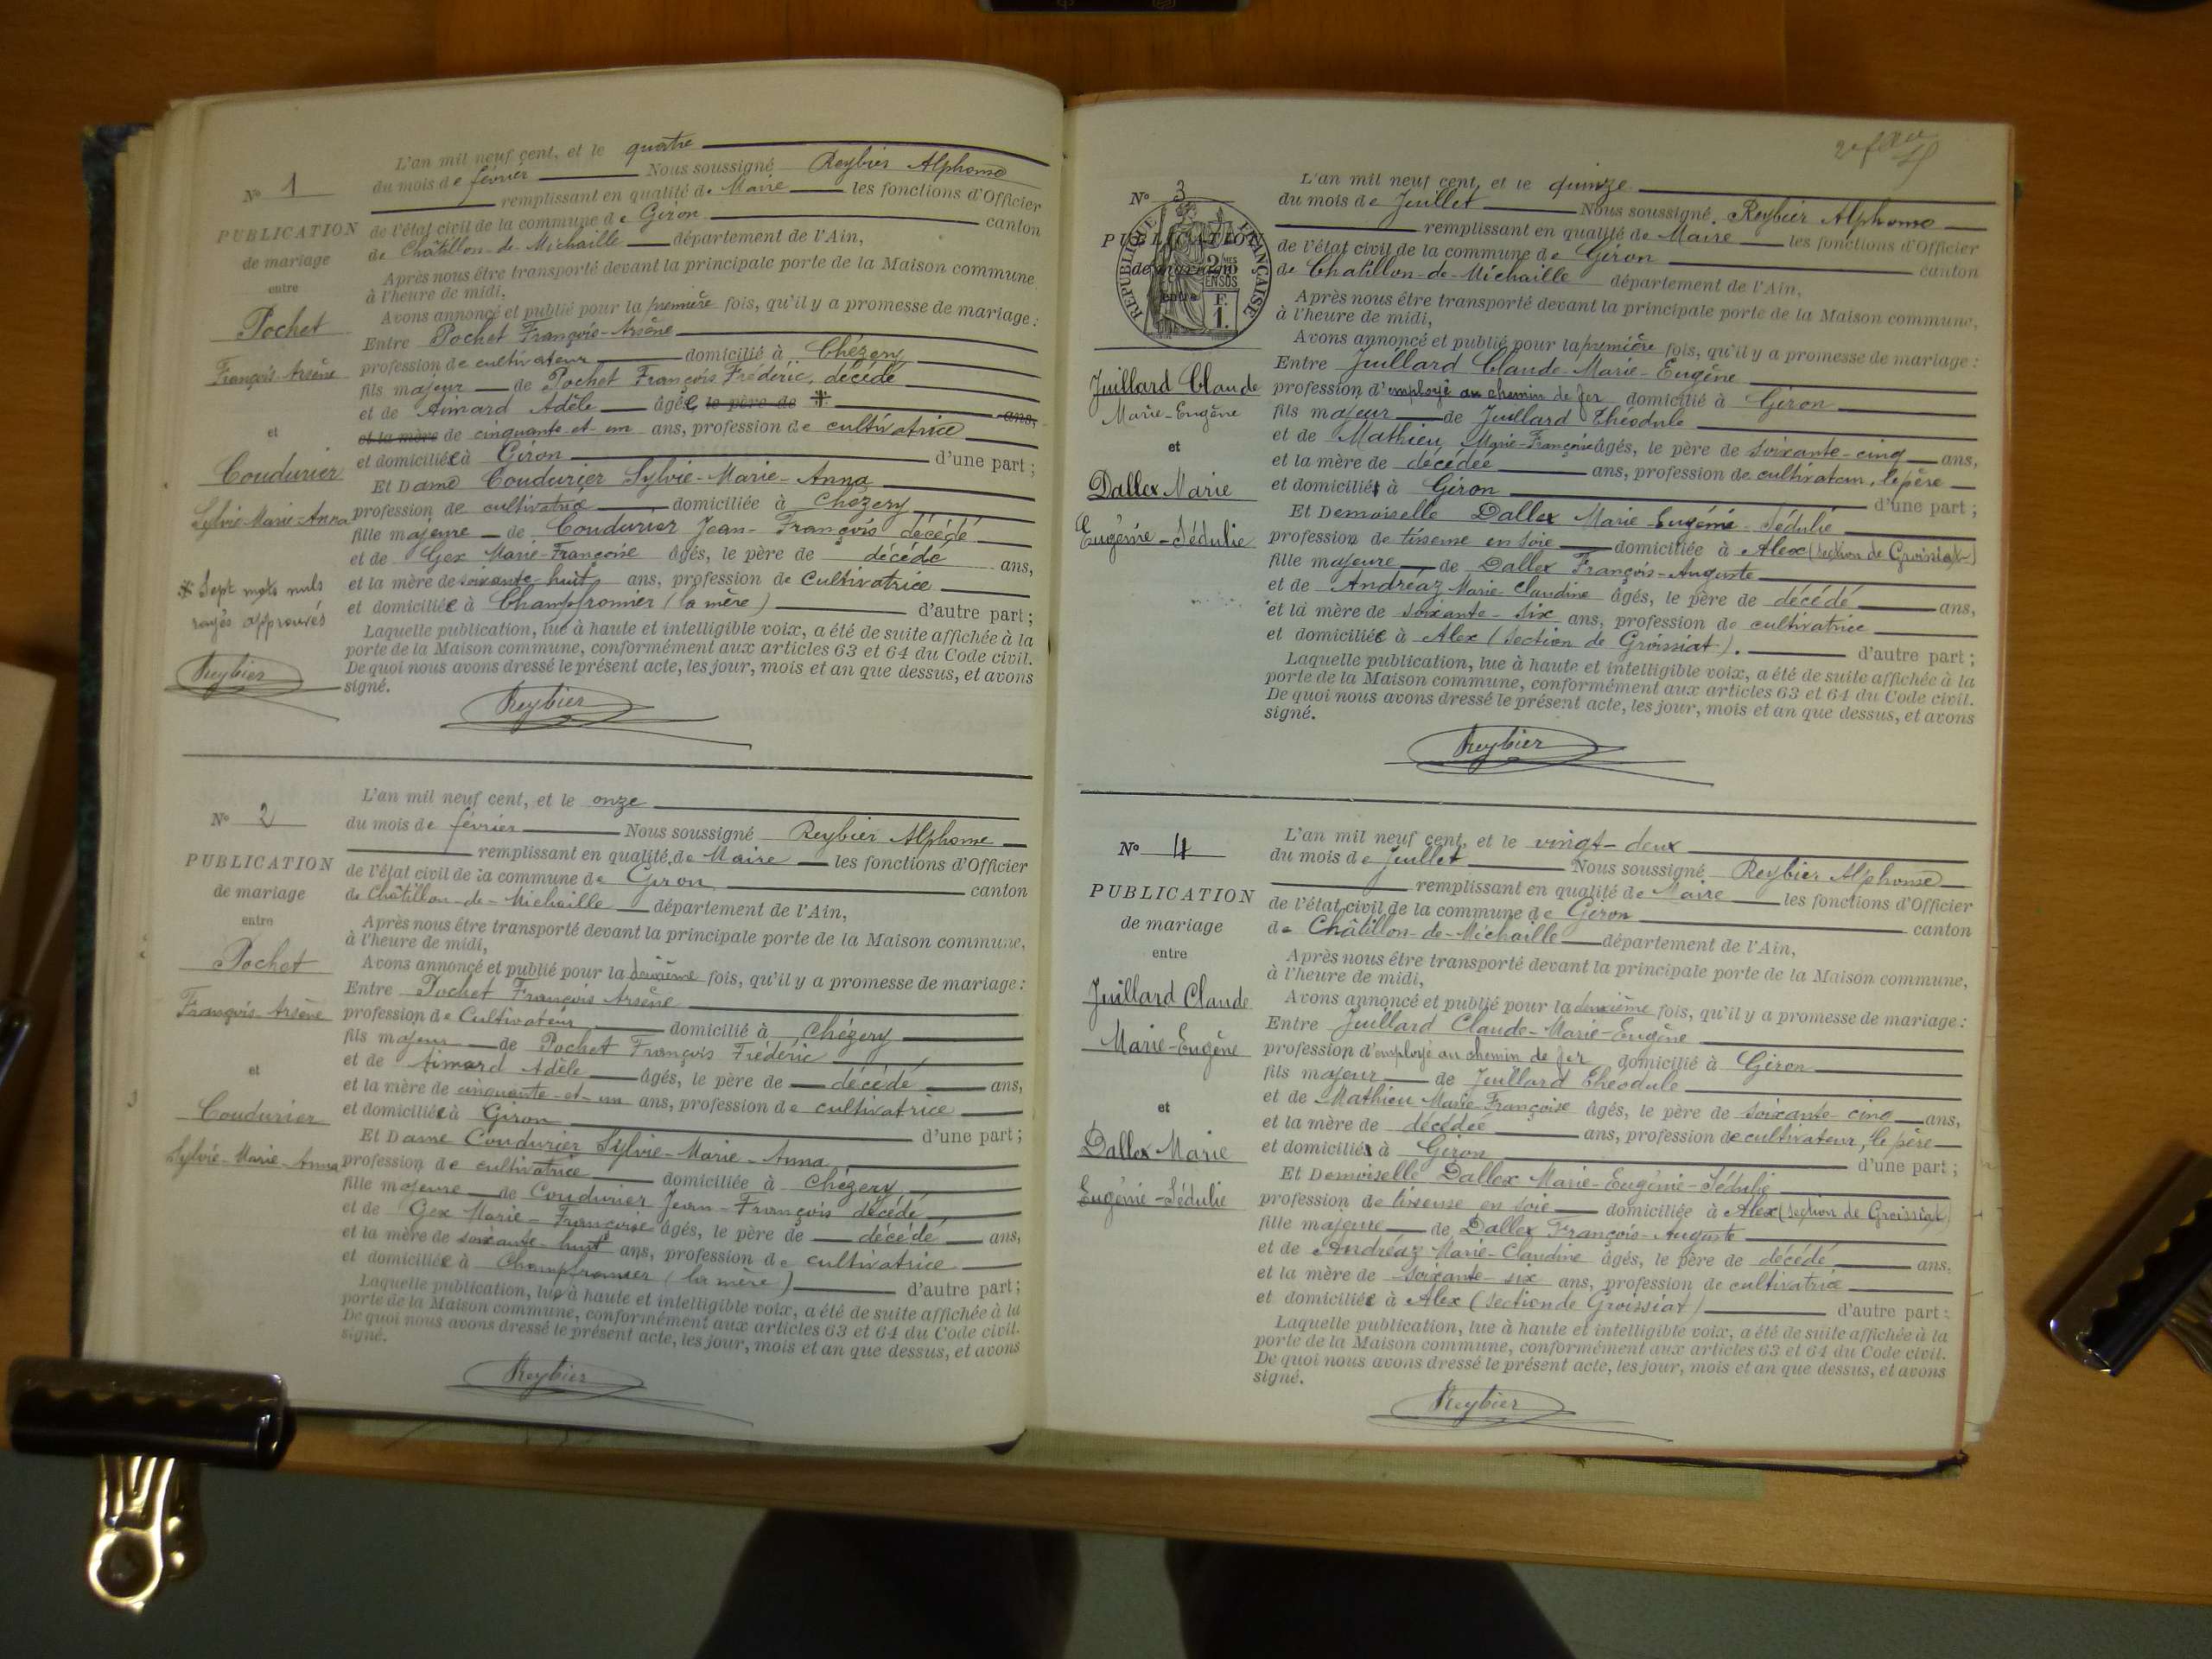 L'an mil neuf cent, et le quatre
du mois de février Nous soussigné Reybier Alphonse
remplissant en qualité de Maire les fonctions d'Officier
de l'état civil de la commune de Giron canton
de Châtillon-de-Michaille département de l'Ain,
Après nous être transporté devant la principale porte de la Maison commune
à l'heure de midi,
Avons annoncé et publié pour la première fois, qu'il y a promesse de mariage :
Entre Pochet François-Arsène
profession de cultivateur domicilié à Chézery
fils majeur de Pochet François Frédéric, décédé
et de Aimard Adèle âgée le père de * ans,
et la mère de cinquante et un ans, profession de cultivatrice
et domiciliée à Giron d'une part ;
Et Dame Coudurier Sylvie-Marie-Anna
profession de cultivatrice domiciliée à Chézery
fille majeure de Coudurier Jean-François décédé
et de Gex Marie-Françoise âgés, le père de décédé ans,
et la mère de soixante-huit ans, profession de cultivatrice
et domiciliée à Champfromier (la mère) d'autre part ;
Laquelle publication, lue à haute et intelligible voix, a été de suite affichée à la
porte de la Maison commune, conformément aux articles 63 et 64 du Code civil.
De quoi nous avons dressé le présent acte, les jour, mois et an que dessus, et avons
signé.
Reybier
No 1
PUBLICATION
de mariage
entre
Pochet
François-Arsène
et
Coudurier
Sylvie-Marie-Anna
* Sept mots nuls
rayés approuvés
Reybier
L'an mil neuf cent, et le onze
du mois de février Nous soussigné Reybier Alphonse
remplissant en qualité de Maire les fonctions d'Officier
de l'état civil de la commune de Giron canton
de Châtillon-de-Michaille département de l'Ain,
Après nous être transporté devant la principale porte de la Maison commune,
à l'heure de midi,
Avons annoncé et publié pour la deuxième fois, qu'il y a promesse de mariage :
Entre Pochet François Arsène
profession de Cultivateur domicilié à Chézery
fils majeur de Pochet François Frédéric
et de Aimard Adèle âgés, le père de décédé ans,
et la mère de cinquante-et-un ans, profession de cultivatrice
et domiciliée à Giron d'une part ;
Et Dame Coudurier Sylvie-Marie-Anna
profession de cultivatrice domiciliée à Chézery
fille majeure de Coudurier Jean-François décédé
et de Gex Marie-Françoise âgés, le père de décédé ans,
et la mère de soixante-huit ans, profession de cultivatrice
et domiciliée à Champfromier (la mère) d'autre part ;
Laquelle publication, lue à haute et intelligible voix, a été de suite affichée à la
porte de la Maison commune, conformément aux articles 63 et 64 du Code civil.
De quoi nous avons dressé le présent acte, les jour, mois et an que dessus, et avons
signé.
Reybier
No 2
PUBLICATION
de mariage
entre
Pochet
François-Arsène
et
Coudurier
Sylvie-Marie-Anna
L'an mil neuf cent, et le quinze
du mois de Juillet Nous soussigné Reybier Alphonse
remplissant en qualité de Maire les fonctions d'Officier
de l'état civil de la commune de Giron canton
de Chatillon-de-Michaille département de l'Ain,
Après nous être transporté devant la principale porte de la Maison commune,
à l'heure de midi,
Avons annoncé et publié pour la première fois, qu'il y a promesse de mariage :
Entre Juillard Claude-Marie-Eugène
profession d'employé au chemin de fer domicilié à Giron
fils majeur de Juillard Théodule
et de Mathieu Marie-Françoise âgés, le père de soixante-cinq ans,
et la mère de décédée ans, profession de cultivateur, le père
et domiciliés à Giron d'une part ;
Et Demoiselle Dallex Marie Eugénie-Sédulie
profession de tisseuse en soie domiciliée à Alex (section de Groissiat)
fille majeure de Dallex François-Auguste
et de Andréaz Marie-Claudine âgés, le père de décédé ans,
et la mère de soixante-six ans, profession de cultivatrice
et domiciliée à Alex (section de Groissiat). d'autre part ;
Laquelle publication, lue à haute et intelligible voix, a été de suite affichée à la
porte de la Maison commune, conformément aux articles 63 et 64 du Code civil.
De quoi nous avons dressé le présent acte, les jour, mois et an que dessus, et avons
signé.
Reybier
No 3
PUBLICATION
de mariage
entre
RÉPUBLIQUE FRANÇAISE
2/10MES
EN SUS
1 F.
Juillard Claude
Marie-Eugène
et
Dallex Marie
Eugénie-Sédulie
L'an mil neuf cent, et le vingt-deux
du mois de Juillet Nous soussigné Reybier Alphonse
remplissant en qualité de Maire les fonctions d'Officier
de l'état civil de la commune de Giron canton
de Châtillon-de-Michaille département de l'Ain,
Après nous être transporté devant la principale porte de la Maison commune,
à l'heure de midi,
Avons annoncé et publié pour la deuxième fois, qu'il y a promesse de mariage :
Entre Juillard Claude-Marie-Eugène
profession d'employé au chemin de fer domicilié à Giron
fils majeur de Juillard Théodule
et de Mathieu Marie-Françoise âgés, le père de soixante-cinq ans,
et la mère de décédée ans, profession de cultivateur, le père
et domiciliés à Giron d'une part ;
Et Demoiselle Dallex Marie-Eugénie-Sédulie
profession de tisseuse en soie domiciliée à Alex (section de Groissiat)
fille majeure de Dallex François-Auguste
et de Andréaz Marie-Claudine âgés, le père de décédé ans,
et la mère de soixante-six ans, profession de cultivatrice
et domiciliée à Alex (section de Groissiat) d'autre part ;
Laquelle publication, lue à haute et intelligible voix, a été de suite affichée à la
porte de la Maison commune, conformément aux articles 63 et 64 du Code civil.
De quoi nous avons dressé le présent acte, les jour, mois et an que dessus, et avons
signé.
Reybier
No 4
PUBLICATION
de mariage
entre
Juillard Claude
Marie-Eugène
et
Dallex Marie
Eugénie-Sédulie